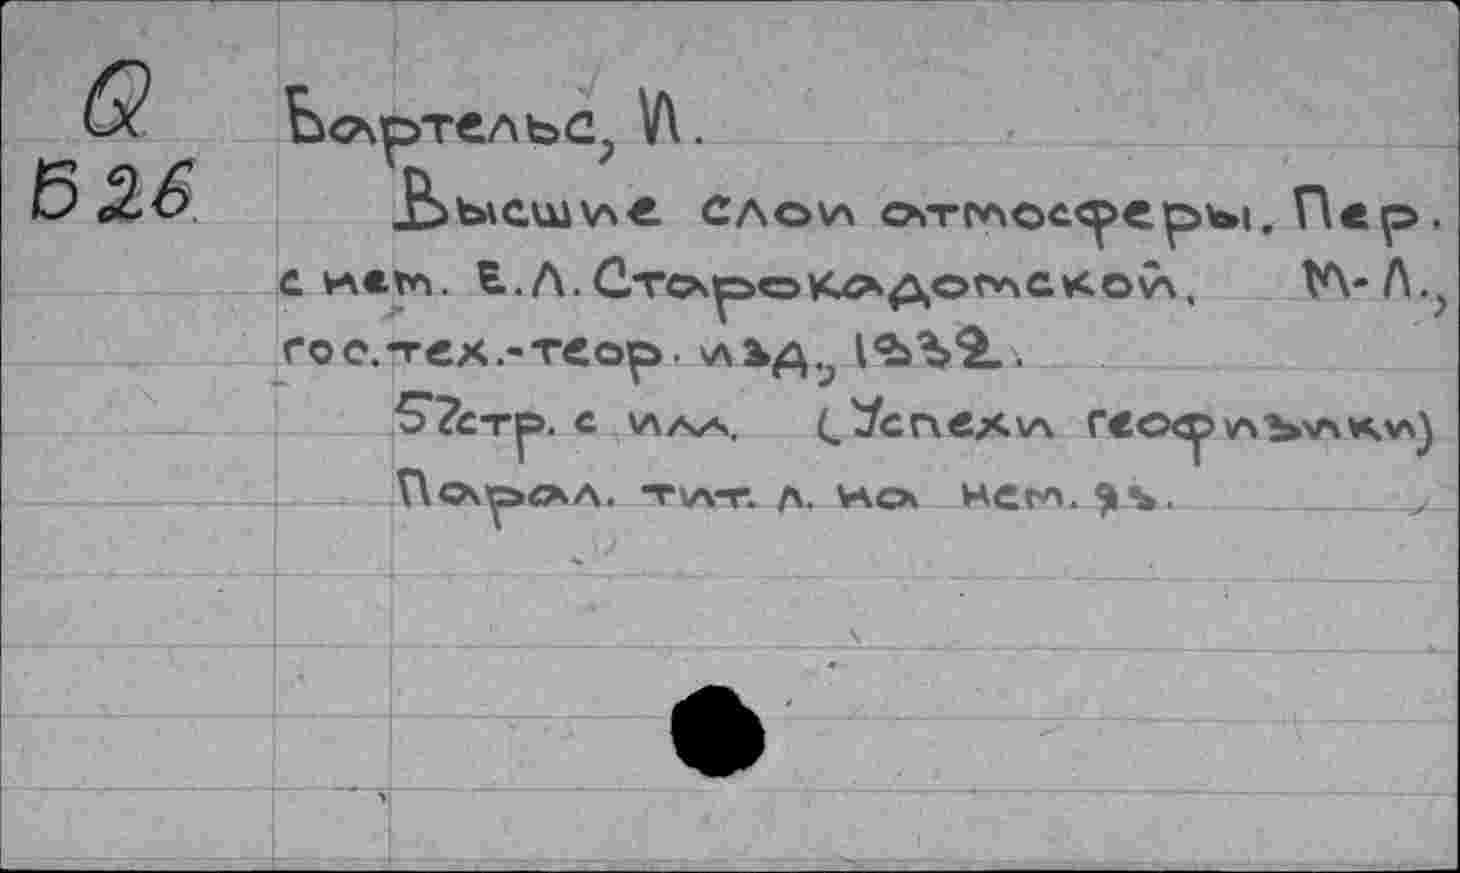 Q
Б 26
Бартельс, И.
Высшие слои атмосферы. Пер.
с нем. Е.Л. Старокадомской. М-Л.,
гос.тех.-теор. изд., 1932.
57стр. с илл. (Успехи геофизики)
Парал. тит. л. на нем. яз.